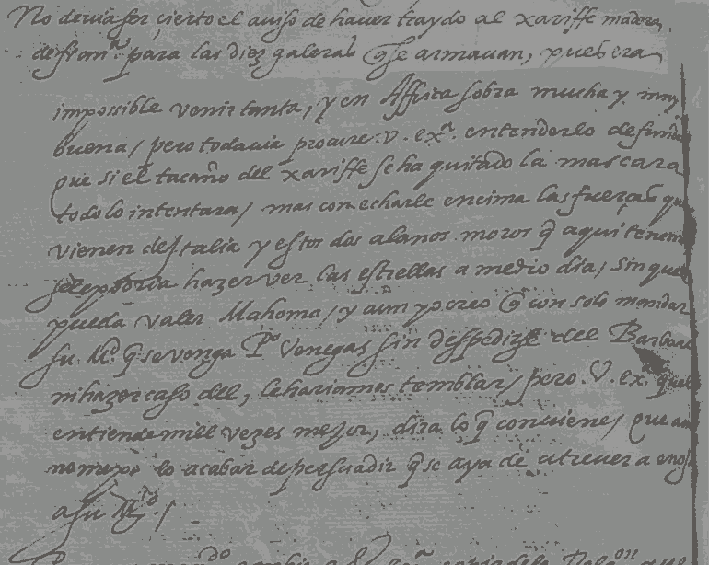 No deuia ser cierto el auiso de hauer traydo al xariffe madera
de from.ra para las diez galeras q̃ se armauan, pues era
impossible venir tanta, y en Affrica sobra mucha y muy
buena, pero todauia procure .V. exª. entenderlo de
que si el tacaño del xariffe se ha quitado la mascara
todo lo intentara, mas con echarle encima las fuerças q
vienen de Italia y estos dos alanos moros q̃ aqui
se le podria hazer ver las estrellas a medio dia, sin que
pueda valer Mahoma, y aun yo creo q̃ con solo mandar
su M.d q̃ se venga P.o Venegas sin despedirse del Barbaro
ni hazer caso del, le hariamos temblar, pero .V. ex. que
entiende mill vezes mejor, dira lo q̃ conuiene, que aun
no me pe lo acabar de persuadir q̃ se aya de atreuer a
a su